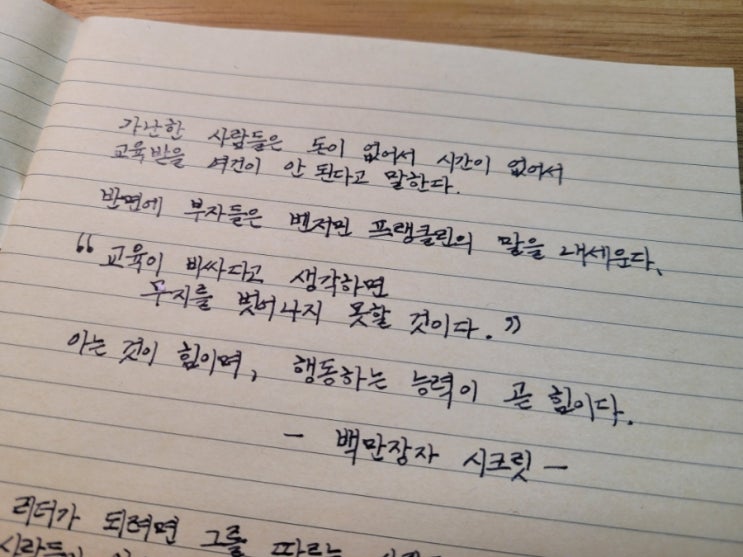 가난한 사람들은 돈이 없어서 시간이 없어서
교육받을 여건이 안 된다고 말한다.
반면에 부자들은 벤저민 프랭클린의 말을 내세운다.
“교육이 비싸다고 생각하면
무지를 벗어나지 못할 것이다.”
아는 것이 힘이며, 행동하는 능력이 곧 힘이다.
- 백만장자 시크릿 -
리더가 되려면 그를 따르는
사람들이